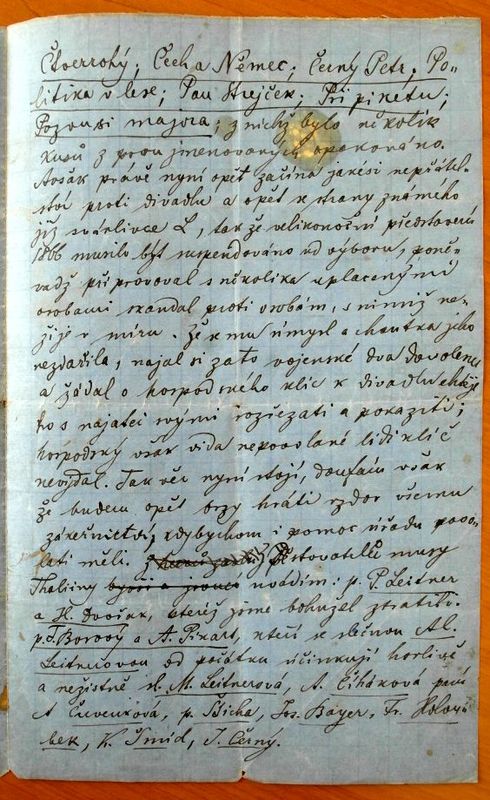 Čtverrohý; Čech a Němec; Černý Petr, Po-
litika v lese; Pan Strejček; Při piketu;
Pozor majora; z nichž bylo několik
kusů z prvu jmenovaných opakováno.
Avšak právě nyní opět začíná jakési nepřátel-
ství proti divadlu a opět se strany známého
již svárlivce L, tak že velikonoční představení
1866 musilo být suspendováno od výboru, poně-
vadž při provoval s několika uplacenými
osobami skandal proti osobám, s nimiž ne-
žije v míru. Že k mu úmysl a choutka jeho
nezdařila, najal si zato vojenské dva dovolence
a žádal o hospodského klíč k divadlu chtěje
ho s najatci svými rozřezati a pokaziti;
hospodský však vida nepovolané lidi klíč
nevydal. Tak věc nyní stojí, doufám však
že budem opět brzy hráti vzdor všemu
zákeřnictví, kdybychom i pomoc úřadu pavo-
lati měli. Pěstovatelů musy
Thaliiny uvádím: p. P. Leitner
a H. Dvořák, kteréž jsme bohužel ztratili.
p. J. Borový a A. Pikart, kteří se slečnou Al.
Leitnerovou od počátku účinkují horlivě
a nezištně sl. M. Leitnerová, A. Čiháková paní
A Červenková, p. Sticha, Jos. Bayer, Fr. Holou-
bek, K. Šmíd, J. Černý.